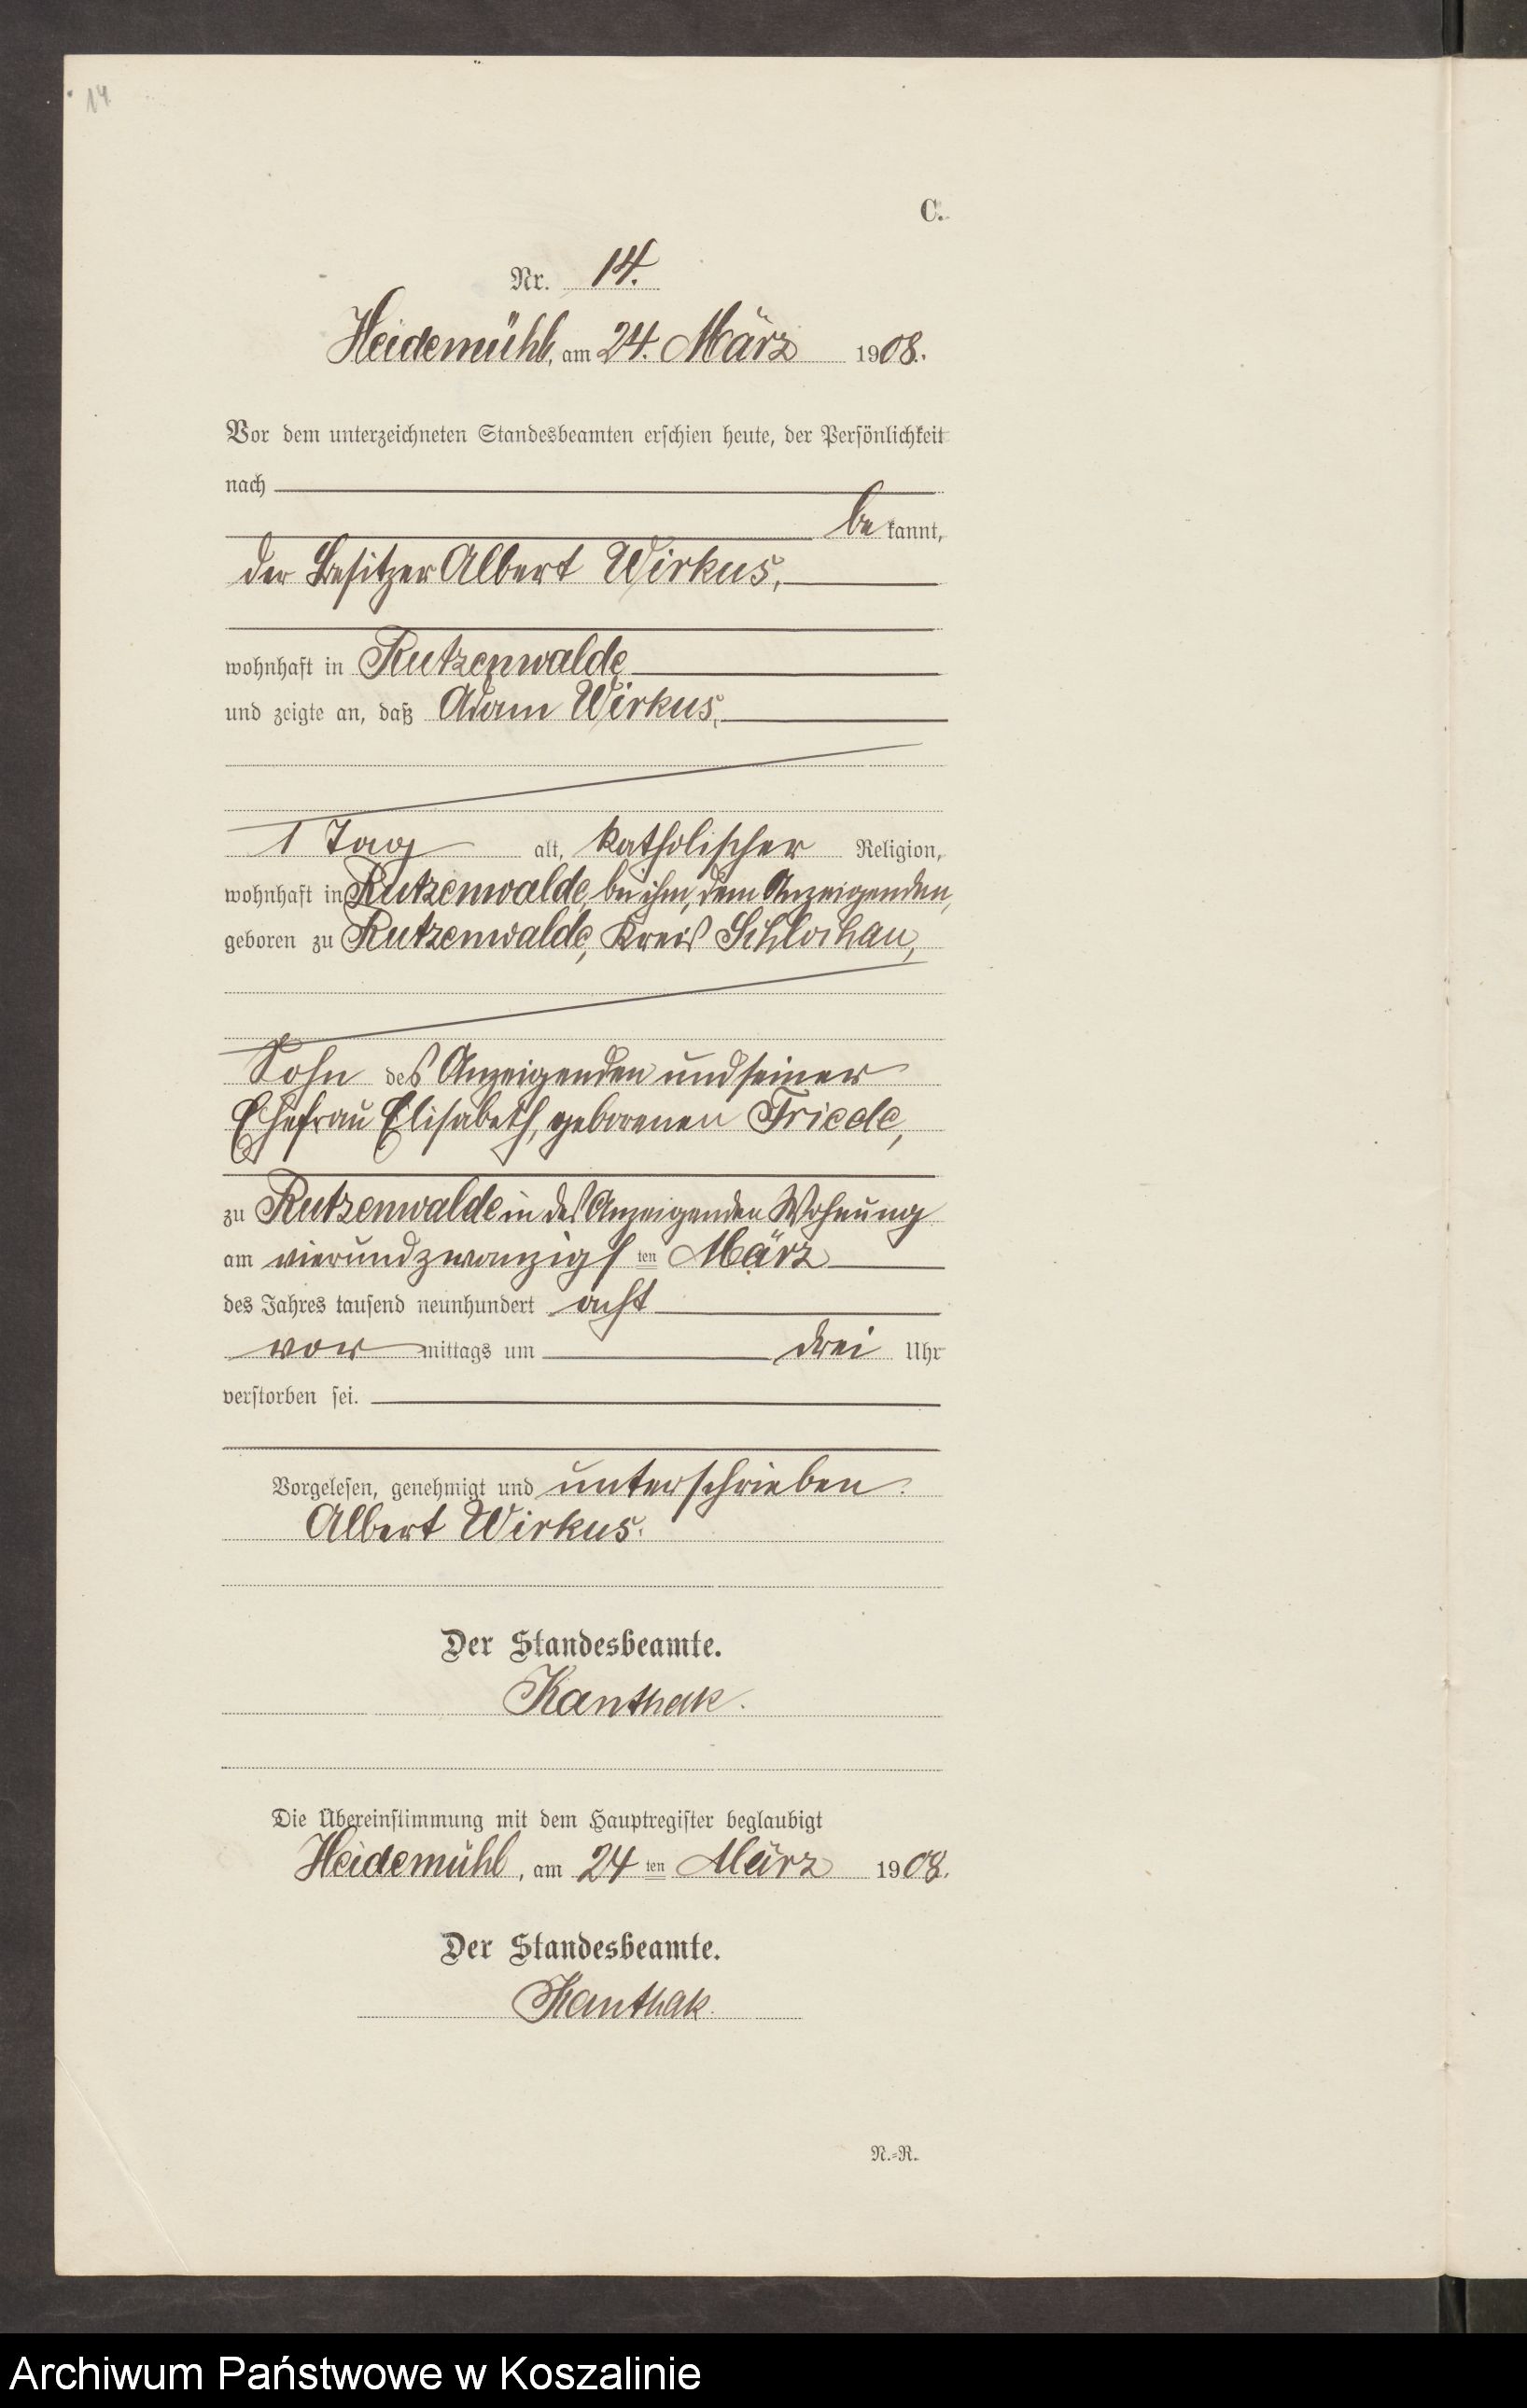 14
C.
Nr. 14.
Heidemühl, am 24. März 1908.
Vor dem unterzeichneten Standesbeamten erschien heute, der Persönlichkeit
nach
be kannt,
der Besitzer Albert Wirkus,
wohnhaft in Rutzenwalde
und zeigte an, daß Adam Wirkus,
1 Tag alt, katholischer Religion,
wohnhaft in Rutzenwalde, bei ihm, dem Anzeigenden,
geboren zu Rutzenwalde, Kreis Schlochau,
Sohn des Anzeigenden und seiner
Ehefrau Elisabeth, geborenen Friede,
zu Rutzenwalde in des Anzeigenden Wohnung
am vierundzwanzigs ten März
des Jahres tausend neunhundert acht
vor mittags um drei Uhr
verstorben sei.
Vorgelesen, genehmigt und unterschrieben.
Albert Wirkus.
Der Standesbeamte.
Kanthak.
Die Übereinstimmung mit dem Hauptregister beglaubigt
Heidemühl, am 24 ten März 1908.
Der Standesbeamte.
Kanthak.
N.=R.
Archiwum Państwowe w Koszalinie